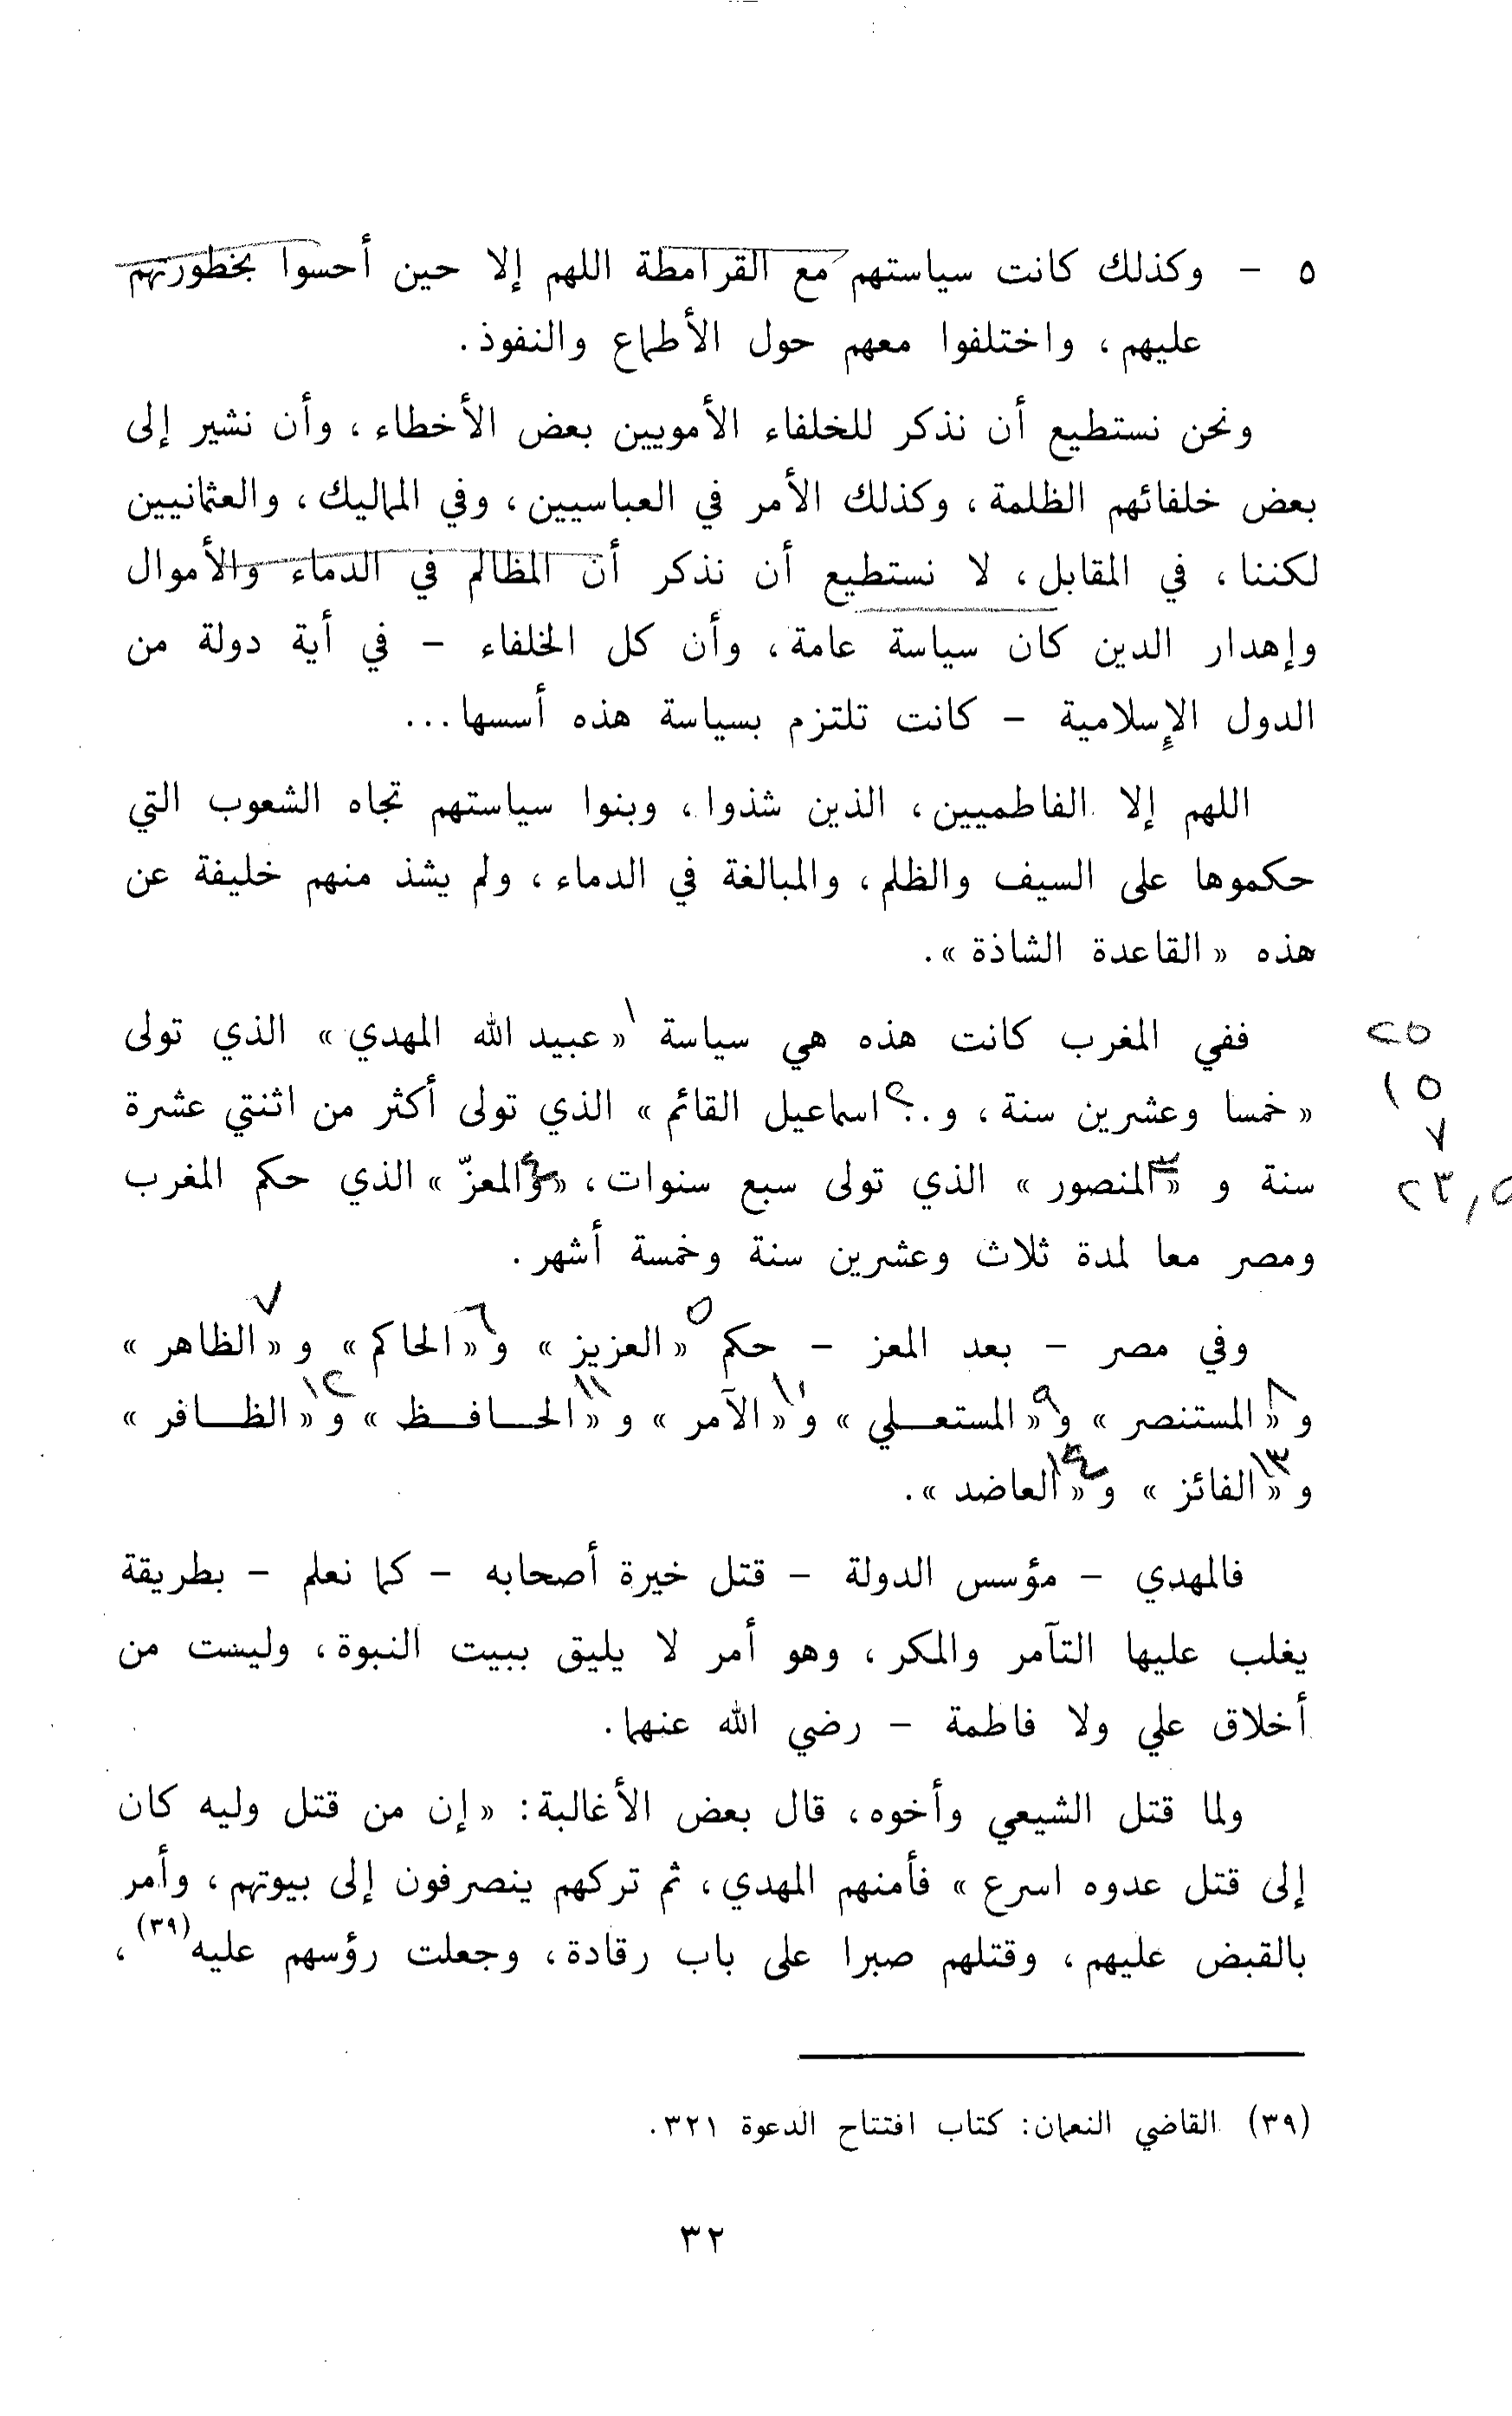 ٥ - وكذلك كانت سياستهم مع القرامطة اللهم إلا حين أحسوا بخطورتهم
عليهم، واختلفوا معهم حول الأطماع والنفوذ.
ونحن نستطيع أن نذكر للخلفاء الأمويين بعض الأخطاء، وأن نشير إلى
بعض خلفائهم الظلمة، وكذلك الأمر في العباسيين، وفي المماليك، والعثمانيين
لكننا، في المقابل، لا نستطيع أن نذكر أن المظالم في الدماء والأموال
وإهدار الدين كان سياسة عامة، وأن كل الخلفاء - في أية دولة من
الدول الإسلامية - كانت تلتزم بسياسة هذه أسسها...
اللهم إلا الفاطميين، الذين شذوا، وبنوا سياستهم تجاه الشعوب التي
حكموها على السيف والظلم، والمبالغة في الدماء، ولم يشذ منهم خليفة عن
هذه «القاعدة الشاذة».
ففي المغرب كانت هذه هي سياسة ١ «عبيد الله المهدي» الذي تولى ٢٥
«خمسا وعشرين سنة، و.. اسماعيل القائم» الذي تولى أكثر من اثنتي عشرة ١٥
سنة و «المنصور» الذي تولى سبع سنوات، «والمعزّ» الذي حكم المغرب ٧
ومصر معا لمدة ثلاث وعشرين سنة وخمسة أشهر. ٢٣,٥
وفي مصر - بعد المعز - حكم ٥ «العزيز» و ٦ «الحاكم» و ٧ «الظاهر»
و ٨ «المستنصر» و ٩ «المستعلي» و ١٠ «الآمر» و ١١ «الحافظ» و ١٢ «الظافر»
و ١٣ «الفائز» و ١٤ «العاضد».
فالمهدي - مؤسس الدولة - قتل خيرة أصحابه - كما نعلم - بطريقة
يغلب عليها التآمر والمكر، وهو أمر لا يليق ببيت النبوة، وليست من
أخلاق علي ولا فاطمة - رضي الله عنهما.
ولما قتل الشيعي وأخوه، قال بعض الأغالبة: «إن من قتل وليه كان
إلى قتل عدوه اسرع» فأمنهم المهدي، ثم تركهم ينصرفون إلى بيوتهم، وأمر
بالقبض عليهم، وقتلهم صبرا على باب رقادة، وجعلت رؤسهم عليه(٣٩)،
(٣٩) القاضي النعمان: كتاب افتتاح الدعوة ٣٢١.
٣٢